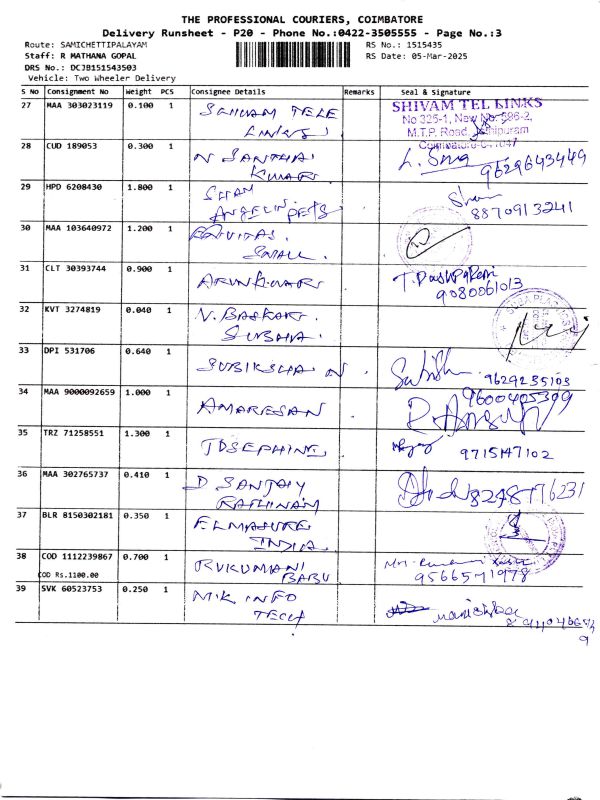 THE PROFESSIONAL COURIERS, COIMBATORE
Delivery Runsheet - P20 - Phone No.:0422-3505555 - Page No.:3
Route: SAMICHETTIPALAYAM RS No.: 1515435
Staff: R MATHANA GOPAL RS Date: 05-Mar-2025
DRS No.: DCJB151543503
Vehicle: Two Wheeler Delivery
S No Consignment No Weight PCS Consignee Details Remarks Seal & Signature
27 MAA 303023119 0.100 1 SHIVAM TELE SHIVAM TEL LINKS
LINKS No 325-1, New No: 596-2,
M.T.P. Road,
28 CUD 189053 0.300 1 N SANTHA
KUMAR 9629643449
29 HPD 6208430 1.800 1 SHAM Sham
ANGELIN PETS 8870913241
30 MAA 103640972 1.200 1
SMALL
31 CLT 30393744 0.900 1 ARUNKUMAR
9080061013
32 KVT 3274819 0.040 1 V. BASKAR.
SUBHA.
33 DPI 531706 0.640 1 SUBIKSHA N Sathish 9629235103
34 MAA 9000092659 1.000 1 AMARESAN 9600405309
35 TRZ 71258551 1.300 1 JOSEPHINE 9715147102
36 MAA 302765737 0.410 1 D SANJAY
RATHINAM
37 BLR 8150302181 0.350 1
INDIA
38 COD 1112239867 0.700 1 RUKUMANI
COD Rs.1100.00 BABU 9566571978
39 SVK 60523753 0.250 1 M.K INFO
TECH